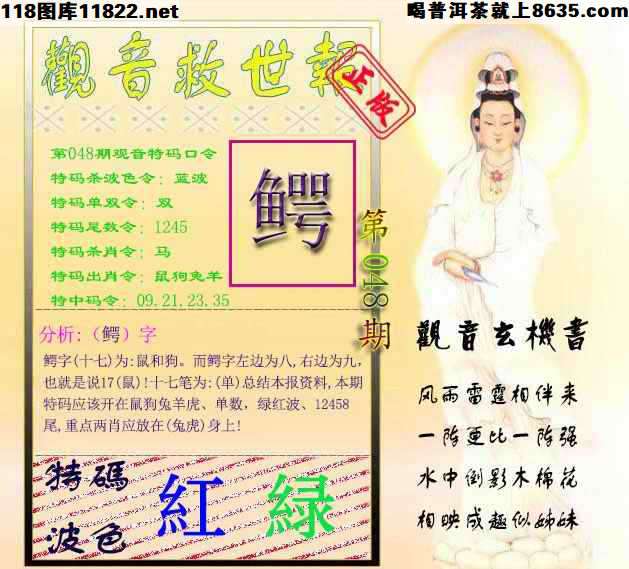 118图库11822.net
喝普洱茶就上8635.com
觀音救世報
正版
第048期观音特码口令
特码杀波色令：蓝波
特码单双令：双
特码尾数令：1245
特码杀肖令：马
特码出肖令：鼠狗兔羊
特中码令：09.21.23.35
鳄
第048期
分析:（鳄）字
鳄字(十七)为:鼠和狗。而鳄字左边为八,右边为九,
也就是说17(鼠)!十七笔为:(单)总结本报资料,本期
特码应该开在鼠狗兔羊虎、单数，绿红波、12458
尾,重点两肖应放在(兔虎)身上!
特碼
波色
紅 緑
觀音玄機書
风雨雷霆相伴来
一阵更比一阵强
水中倒影木棉花
相映成趣似姊妹